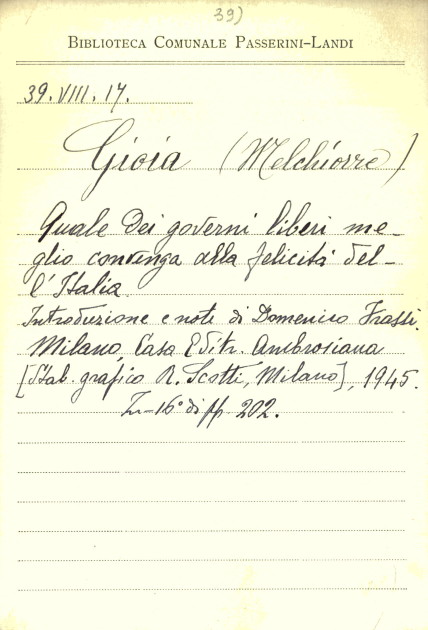 39)
BIBLIOTECA COMUNALE PASSERINI-LANDI
39.VIII.17.
Gioia (Melchiorre)
Quale dei governi liberi me-
glio convenga alla felicità del-
l'Italia.
Introduzione e note di Domenico Frassi.
Milano, Casa Editr. Ambrosiana
[Stab. grafico R. Scotti, Milano], 1945.
In-16° di pp. 202.